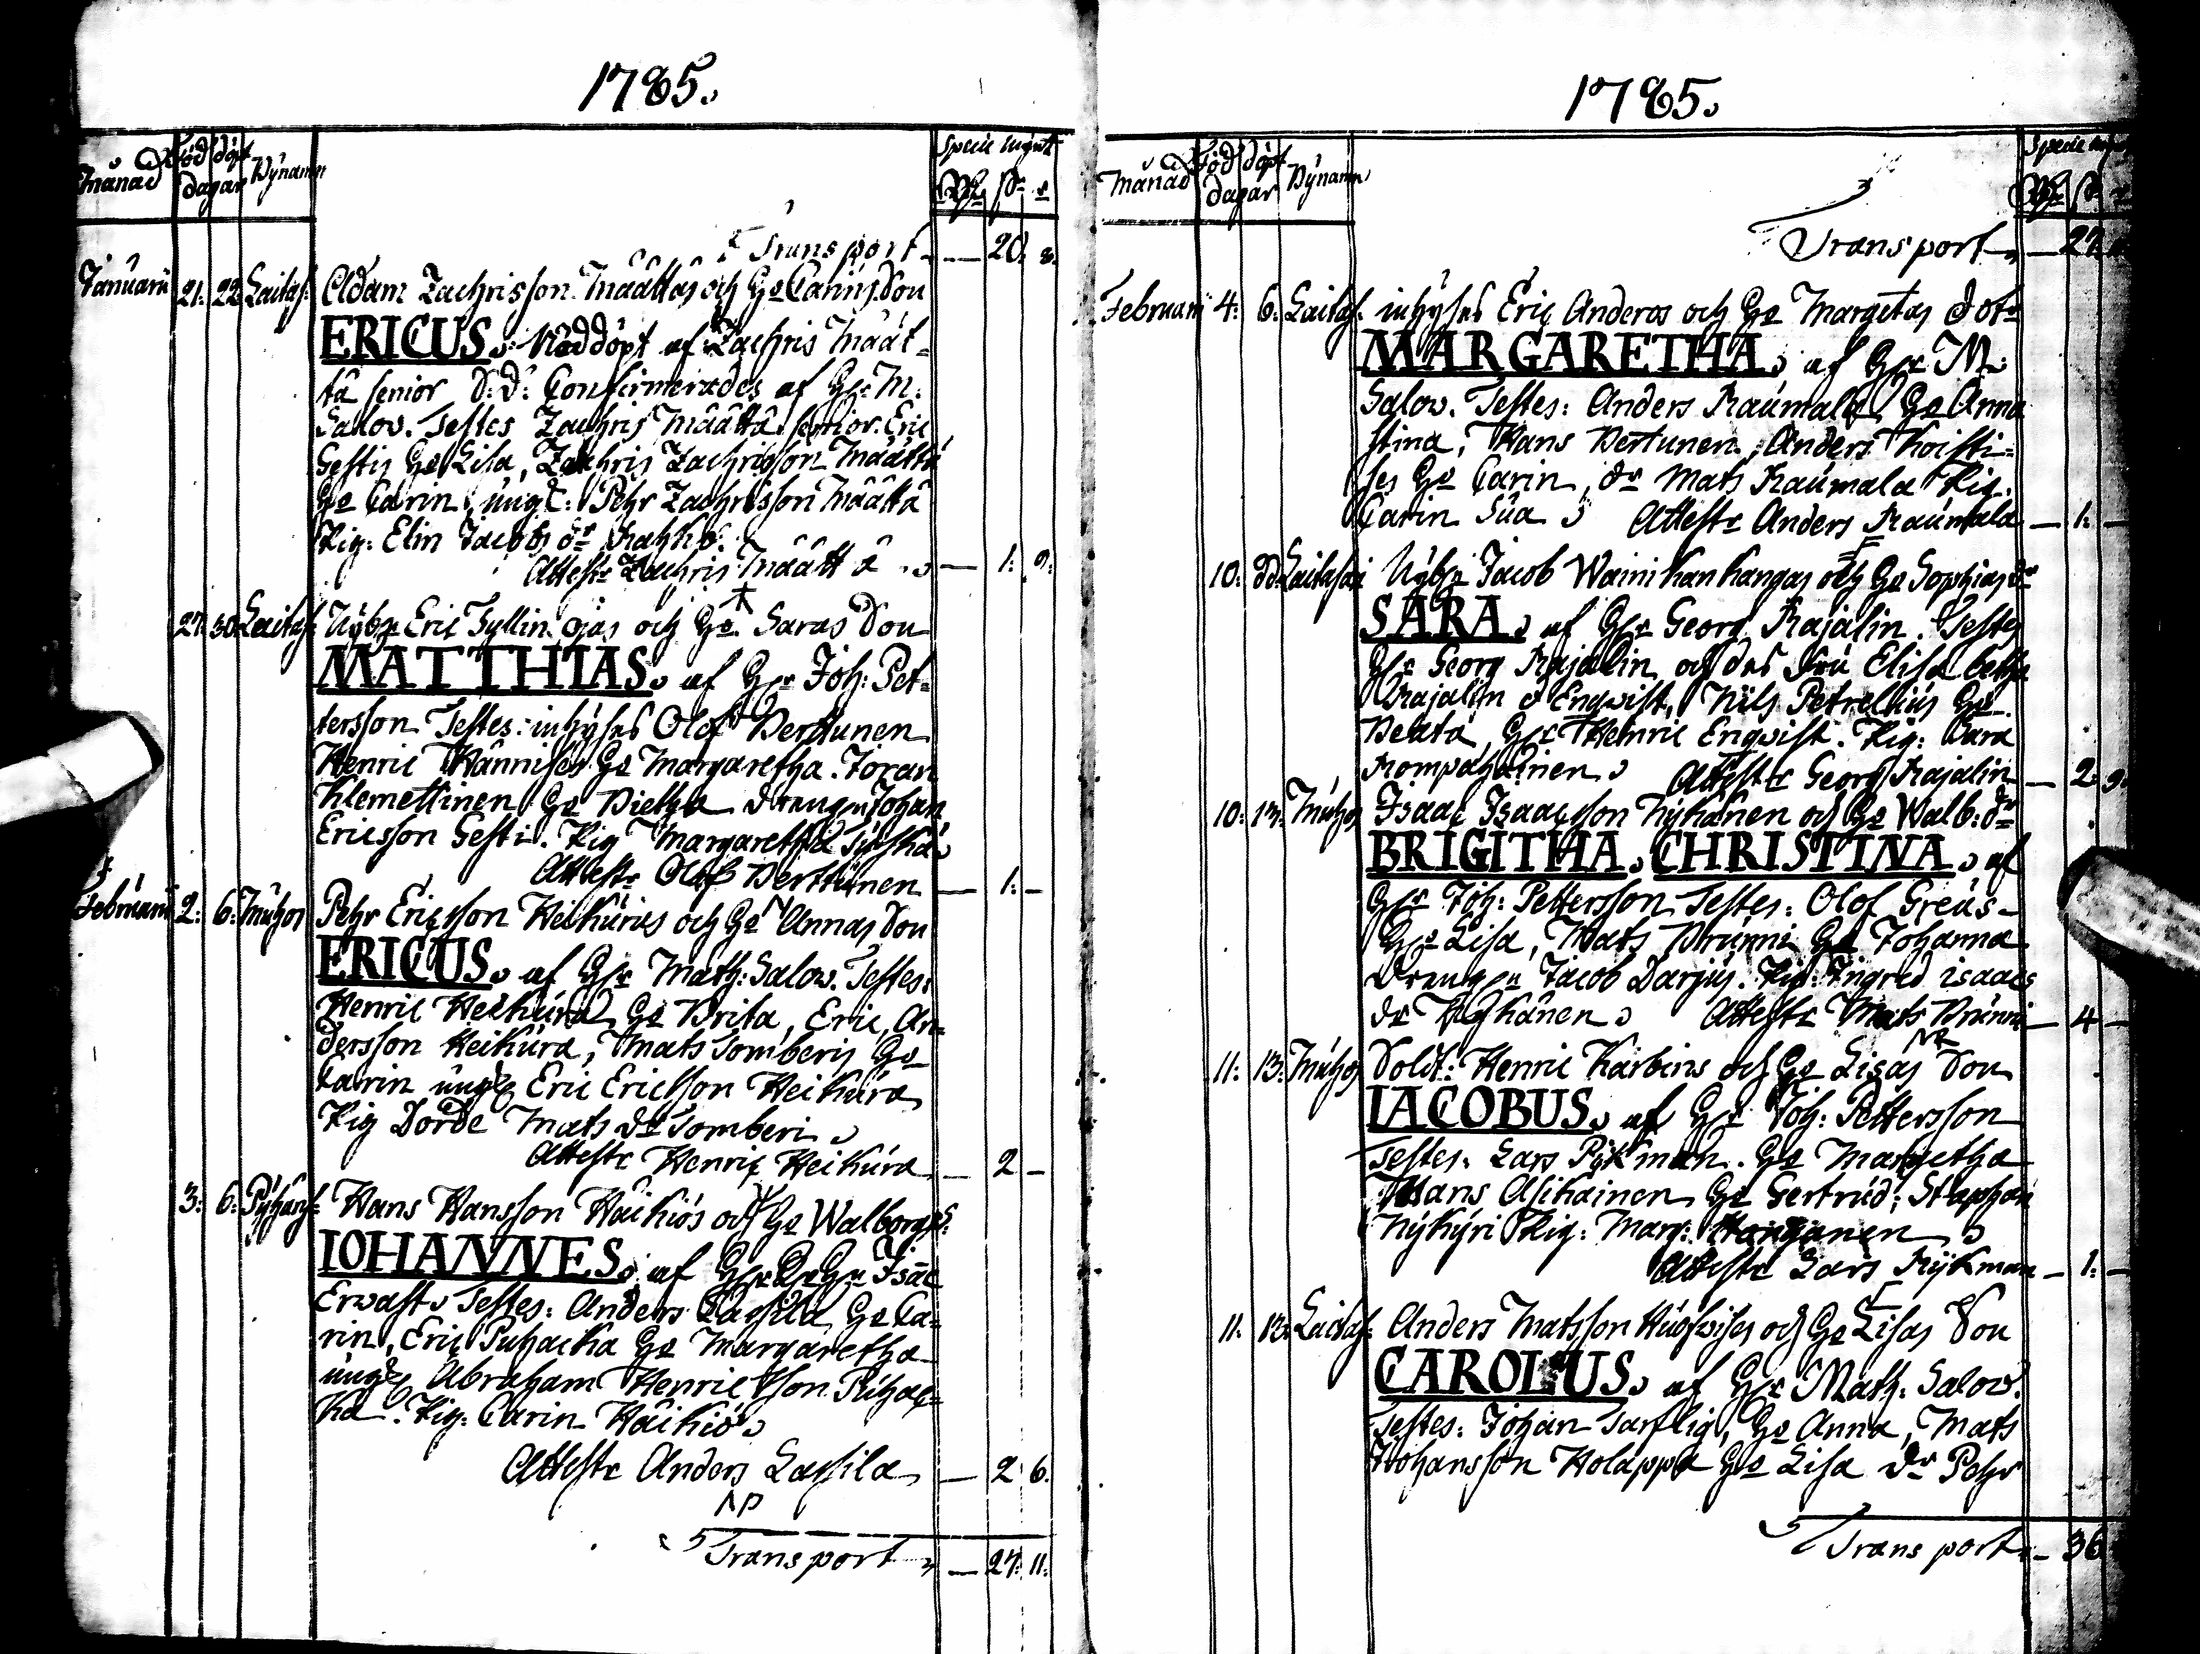 1785.
Månad Född döpt Bÿnamn Specie mÿnt
dagar
Transport — 20: 8.
Januarii 21: 22 Laitas: Adam Zachrisson Määttäs och Ho Carins Son
ERICUS. Nöddöpt af Zachris Määt-
tä senior D:D: Confirmerades af Hr M:
Salov. Testes Zachris Määttä senior. Eric
Gestis Ho Lisa, Zachris Zachrisson Määttä
Ho Carin, ungk: Pehr Zachrisson Määttä
Pig: Elin Jacobs dr
Attestr Zachris Määttä — 1: 9.
27. 30. Laitas: Nÿbr Eric Tyllin ojas och Ho Saras Son
MATTHIAS. af Hr Joh: Pet-
tersson Testes: inhÿses Olof Perttunen
Henric Hännises Ho Margaretha. Joran
Klemettinen Ho Dietha drängn Johan
Ericsson Gesti. Pig Margaretha
Attestr Olof Perttunen — 1: —
Februarii 2: 6: Muhos Pehr Ericsson Heikuras och Ho Annas Son
ERICUS. af Hr Math: Salov. Testes:
Henric Heikura Ho Brita, Eric An-
dersson Heikura, Mats Tomberis Ho
Carin ungk Eric Ericsson Heikura
Pig Dorde Mats dr Tomberi
Attestr Henric Heikura — 2 —
3: 6: Pÿhänst: Hans Hansson Häikiös och Ho Walborgs S:
IOHANNES. af Hr Isac
Erwast. Testes: Anders Lassila Ho Ca-
rin, Eric Puhacka Ho Margaretha
ungk Abraham Henricsson Puhac-
ka. Pig: Carin Häikiö
Attestr Anders Lassila — 2 6.
Transport — 27: 11:
1785.
Månad Född döpt Bÿnamn Specie
dagar
Transport — 27:
Februarii 4: 6: Laitas: inhÿses Eric Anderos och Ho Margetas dotr
MARGARETHA. af Hr M:
Salov. Testes: Anders Raumala Ho Anna
stina, Hans Pertunen, Anders Koisti-
ses Ho Carin, dr Mats Raumala Pig.
Carin Sua Attestr Anders Raumala — 1: —
10: dd: Laitasari Nÿbr Jacob Wainikankangas och Ho Sophias dr
SARA. af Hr Georg Rajalin. Testes
Hr Georg Rajalin och des Fru Elisabetha
Rajalin d Enqvist, Nils Petrellius Ho
Beata, Hr Henric Enqvist. Pig: Sara
Rompahainen Attestr Georg Rajalin — 2: 9.
10: 13: Muhos Isaac Isaacsson Nÿkänen och Ho Walb: dr
BRIGITHA. CHRISTINA. af
Hr Joh: Pettersson Testes: Olof Greus
Ho Lisa, Mats Brunni Ho Johanna
Drängn Jacob Darjus. Pig: Ingred isaacs
dr Nÿkänen Attestr Mats Brunni — 4 —
11: 13: Muhos Soldt: Henric Karbins och Ho Lisas Son
IACOBUS. af Hr Joh: Pettersson
Testes: Lars Rÿkman Ho Margetha
Hans Asikainen Ho Gertrud, Staphan
Nÿkÿri Pig: Marg:
Attestr Lars Rÿkman — 1: —
11: 13: Laitas: Anders Matsson och Ho Lisas Son
CAROLUS. af Hr Math: Salov.
Testes: Johan Tarflig, Ho Anna, Mats
Johansson Holappa Ho Lisa dr Pehr
Transport — 36